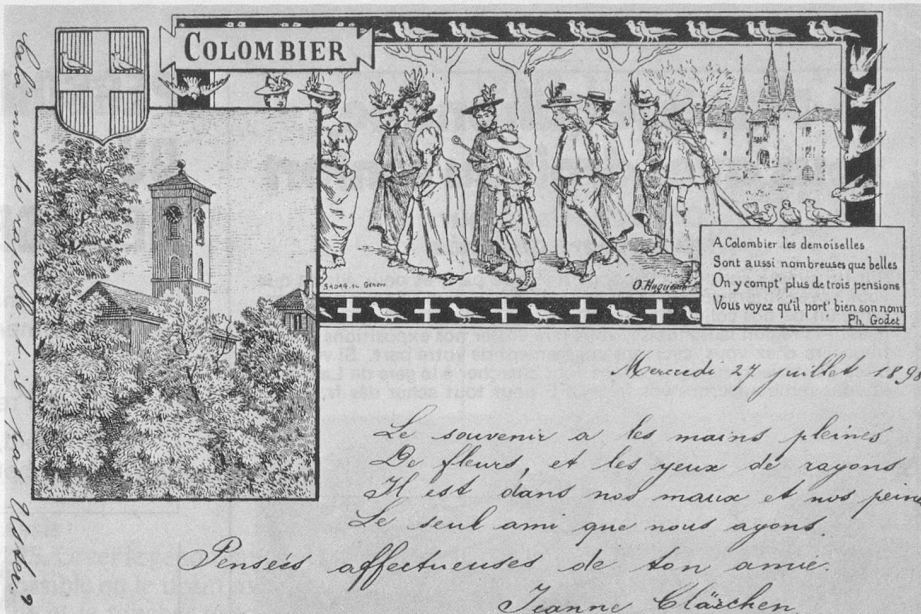 COLOMBIER
A Colombier les demoiselles
Sont aussi nombreuses que belles
On y compt' plus de trois pensions
Vous voyez qu'il port' bien son nom
Ph. Godet
Mercredi 27 juillet 189
Le souvenir a les mains pleines
De fleurs, et les yeux de rayons
Il est dans nos maux et nos pein
Le seul ami que nous ayons.
Pensées affectueuses de ton amie.
Jeanne Clärchen
Cela ne te rappelle t-il pas